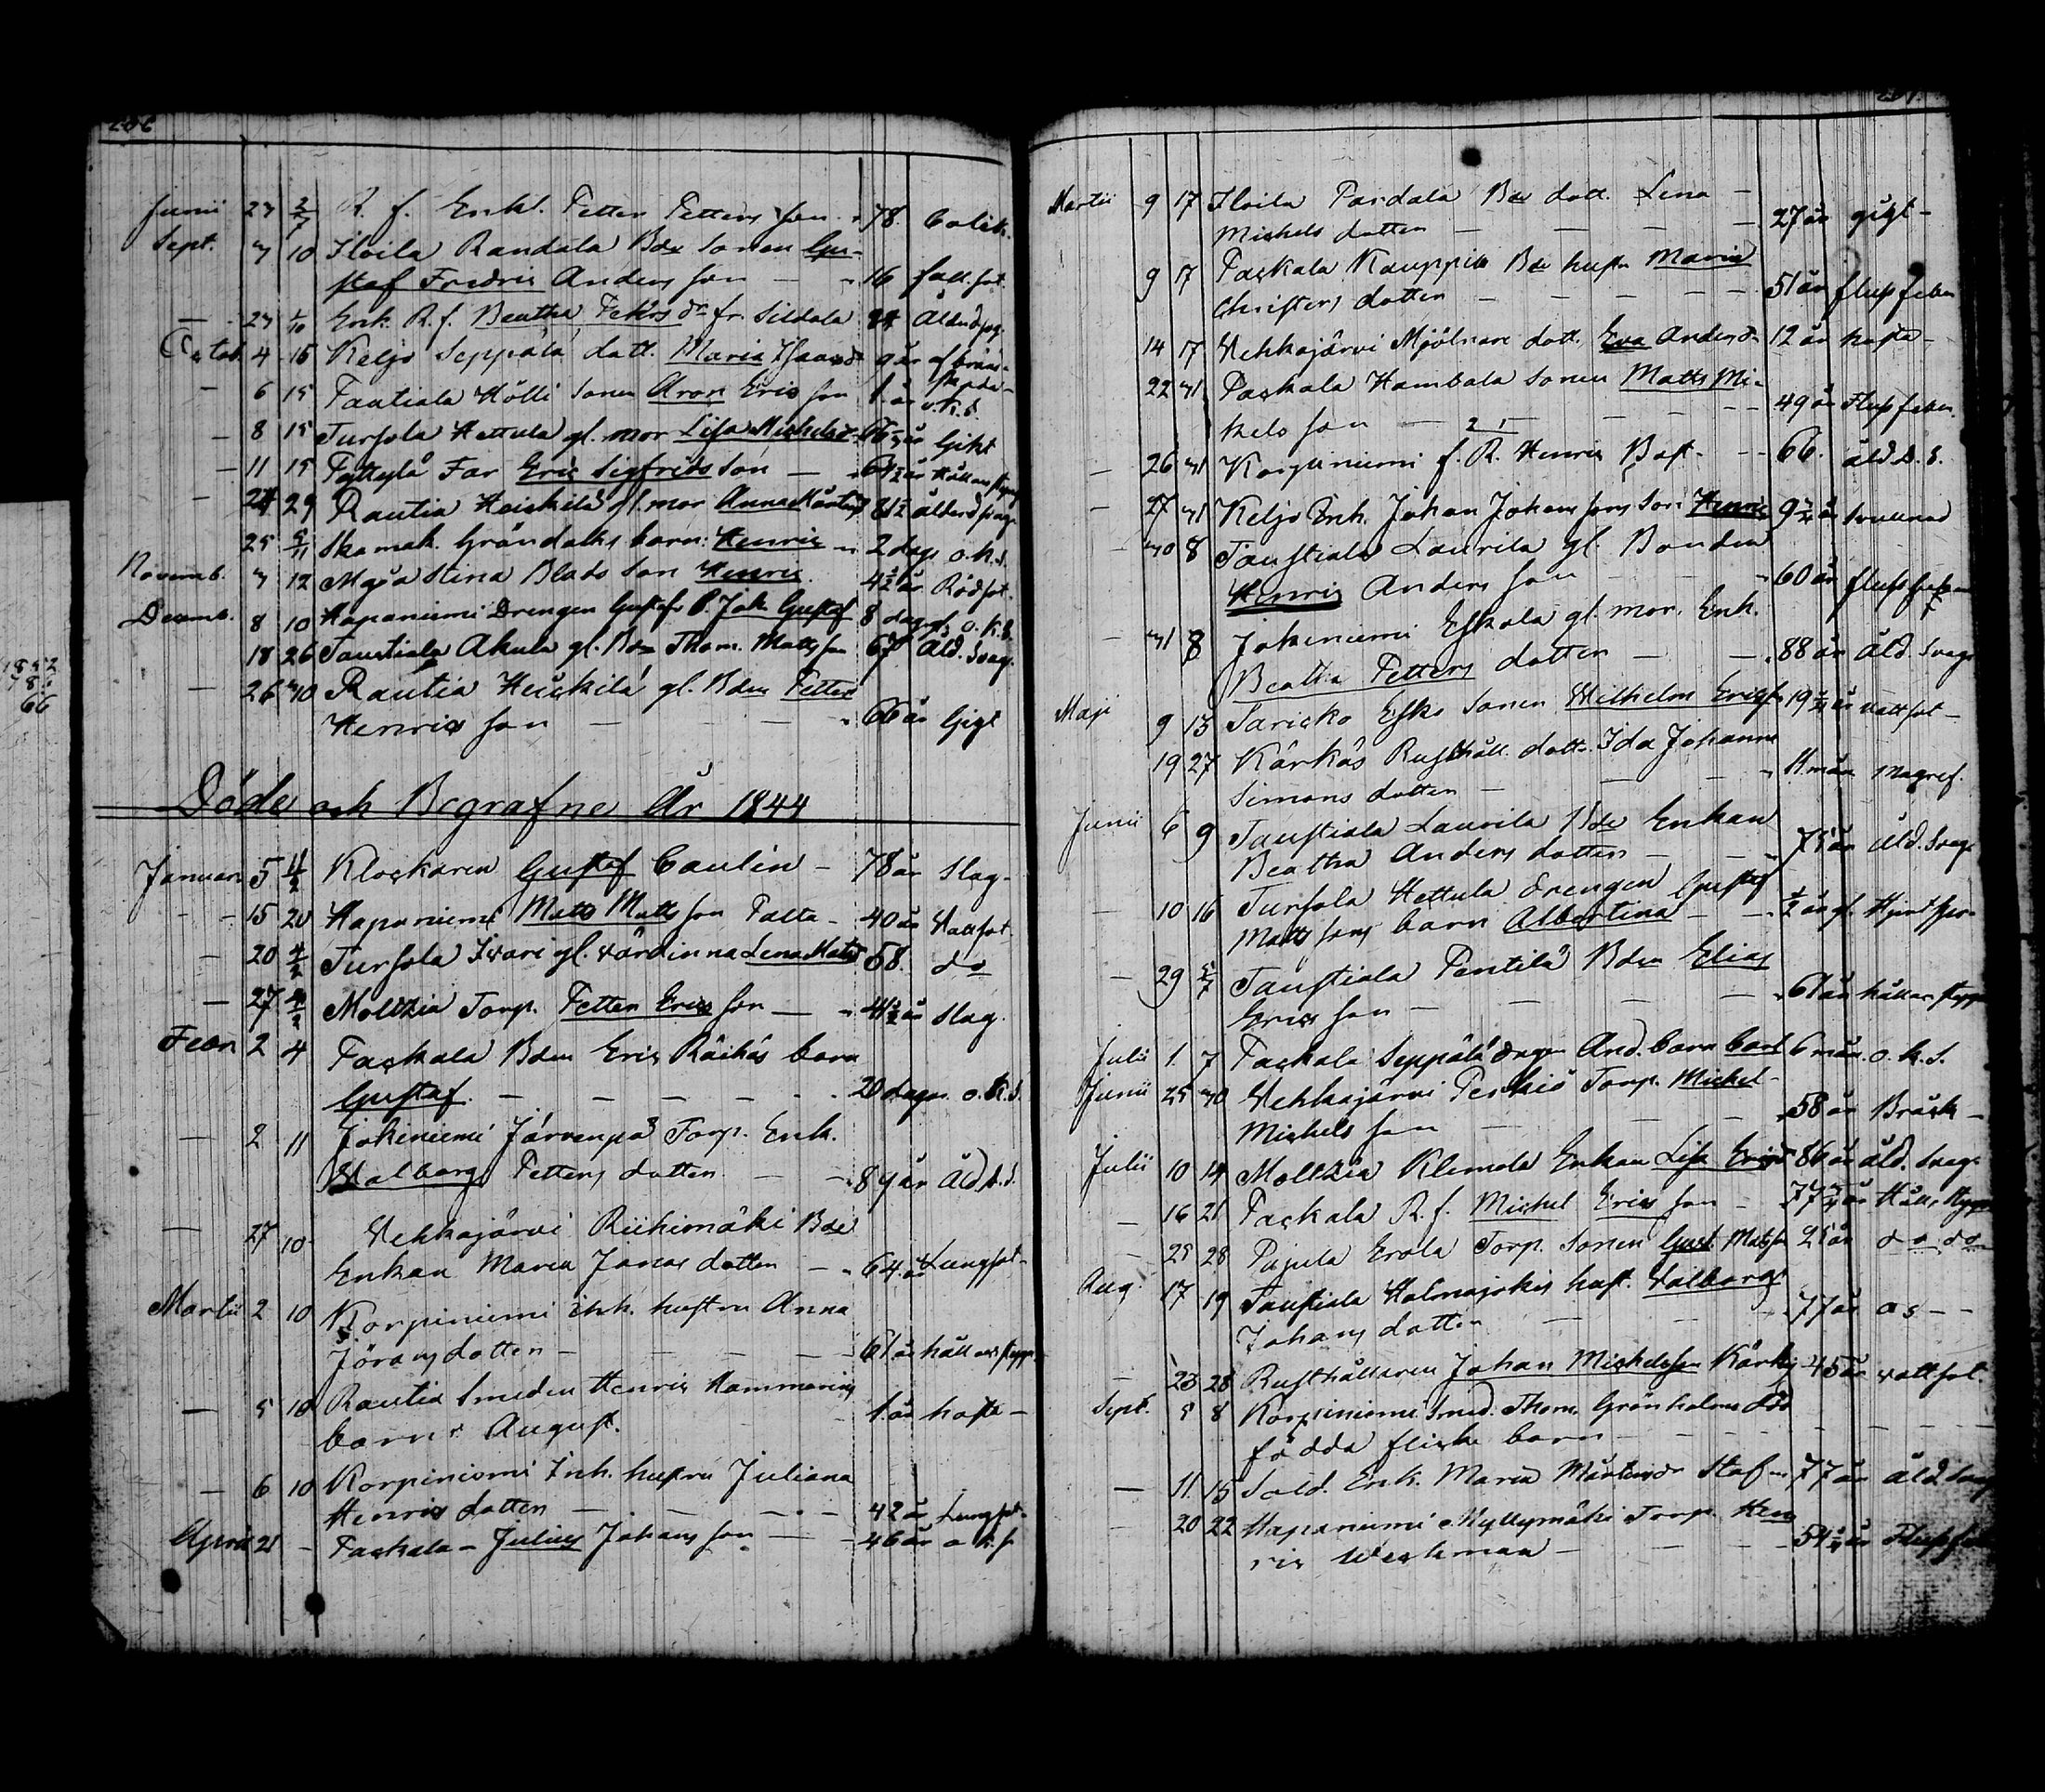 206
Junii 23 2/7 R. f. Enkl. Petter Petters son 78. Colik.
Sept. 3 10 Iloila Randala Bde sonen Gu-
staf Fredric Anders son 16 fall. sot.
— 23 1/10 Enk. R. f. Beatha Petters dr fr. Sildala Ålderdsvag.
Octob. 4 15 Keljo Seppälä dott. Maria Isaacsdr 9 år af brän-
— 6 15 Tautiala Hölli sonen Aron Erics son 1 år o.k.s.
— 8 15 Tursola Hettula gl. mor Lisa Michelsdr år Gikt
— 11 15 Pyttylä Far Eric Sigfrids son 64 1/2 år Håll o. stygn
— 24 29 Rautia Heiskilä gl. mor Anna Mårtensd 81 1/2 ålderdsvag.
25 5/11 Skomak. Gröndahls barn: Henric 2 dagr o.k.s.
Novemb. 3 12 Mjöa Stina Blads son Henric 4 1/2 år Rödsot.
Decemb. 8 10 Haponiemi Drengen Gustafs b. Joh. Gustaf 8 dagr o.k.s.
18 26 Taustiala Akula gl. Bde Thom. Matts son 67 Åld. Svag.
— 26 30 Rautia Heiskilä gl. Bden Petter
Henrics son — 66 år Gigt
Döde och Begrafne År 1844
Januari 5 11/2 Klockaren Gustaf Caulin — 78 år Slag.
— 15 20 Haponiemi Matts Matts son Palta — 40 år Vattsot
— 20 4/2 Tursola Iwari gl. värdinna Lena Matsd 58. do
— 27 4/2 Moltzia Torp. Petter Erics son — 41 1/2 år Slag.
Febr 2 4 Paskala Bden Eric Räihäs barn
Gustaf. — 20 dagar o.k.s.
— 2 11 Jokiniemi Järvenpä Torp. Enk.
Walborg Petters dotter — 84 år Åld.d.s.
— 27 10 Vehkajärvi Riihimäki Bde
Enkan Maria Jonas dotter — 64 år Lungsot.
Martii 2 10 Korpiniemi inh. hustru Anna
Jörans dotter — 61 år håll och stygn
— 5 10 Rautia Smeden Henric Hammarins
barn August. 1 år hosta —
— 6 10 Korpiniemi Inh. hustru Juliana
Henrics dotter — 42 år Lungsot.
April 21 — Paskala — Julius Johans son — 46 år o.k.s
Martii 9 17 Iloila Pardala Bde dott. Lena —
Michels dotter — 27 år gigt —
9 17 Paskala Kauppila Bde hustr Maria
Christers dotter — 51 år fluss feber
14 17 Vehkajärvi Mjölnare dott. Eva Andersd. 12 år hosta —
22 31 Paskala Hambala sonen Matts Mi-
kels son — 49 år Fluss feber.
— 26 31 Korpiniemi f. R. Henric Bast. — 66. åld.d.s.
— 27 31 Keljo Enk. Johan Johans sons son Henric 9 år Svullnad
— 30 8 Taustiala Laurila gl. Bonden
Henric Anders son — 60 år fluss feb
— 31 8 Jokiniemi Eskola gl. mor. Enk.
Beatha Petters dotter — 88 år Åld. svag.
Maji 9 13 Saricko Esko sonen Wilhelm Ericss 19 år vattsot —
19 27 Kärkäs Rusthåll. dott. Ida Johanna
Simons dotter — 11 mån magref.
Junii 6 9 Taustiala Laurila Bde Enkan
Beatha Anders dotter — 75 år Åld. svag.
— 10 16 Tursola Hettula drengen Gustaf
Matts sons barn Albertina — 1/2 år
— 29 5/7 Taustiala Pentilä Bden Elias
Erics son — 61 år håll o. stygn
Julii 1. 7 Paskala Seppälä drgen And. barn Carl 6 mån. o.k.s.
Junii 25 30 Vehkajärvi Peskiö Torp. Michel
Michels son — 58 år Bråck —
Julii 10 14 Moltzia Klemola Enkan Lisa Ericsd 86 år åld. svag.
— 16 21 Paskala R. f. Michel Erics son — 77 år Håll. Stygn
— 25 28 Pajula Erola Torp. sonen Gust. Matss 25 år do do
Aug. 17 19 Taustiala Halmajokis hust. Walborg
Johans dotter — 77 år
— 23 28 Rusthållaren Johan Michelsson Kärkis 45 år vattsot.
Sept. 5 8 Korpiniemi Smed. Thom. Grönholms död
födda flicke barn —
— 11 15 Sold. Enk. Maria Mårtensdr Stafen 77 år åld. svag
— 20 22 Haponiemi Myllymäki Torp. Hen
ric Weckman — 54 år Fluss feb